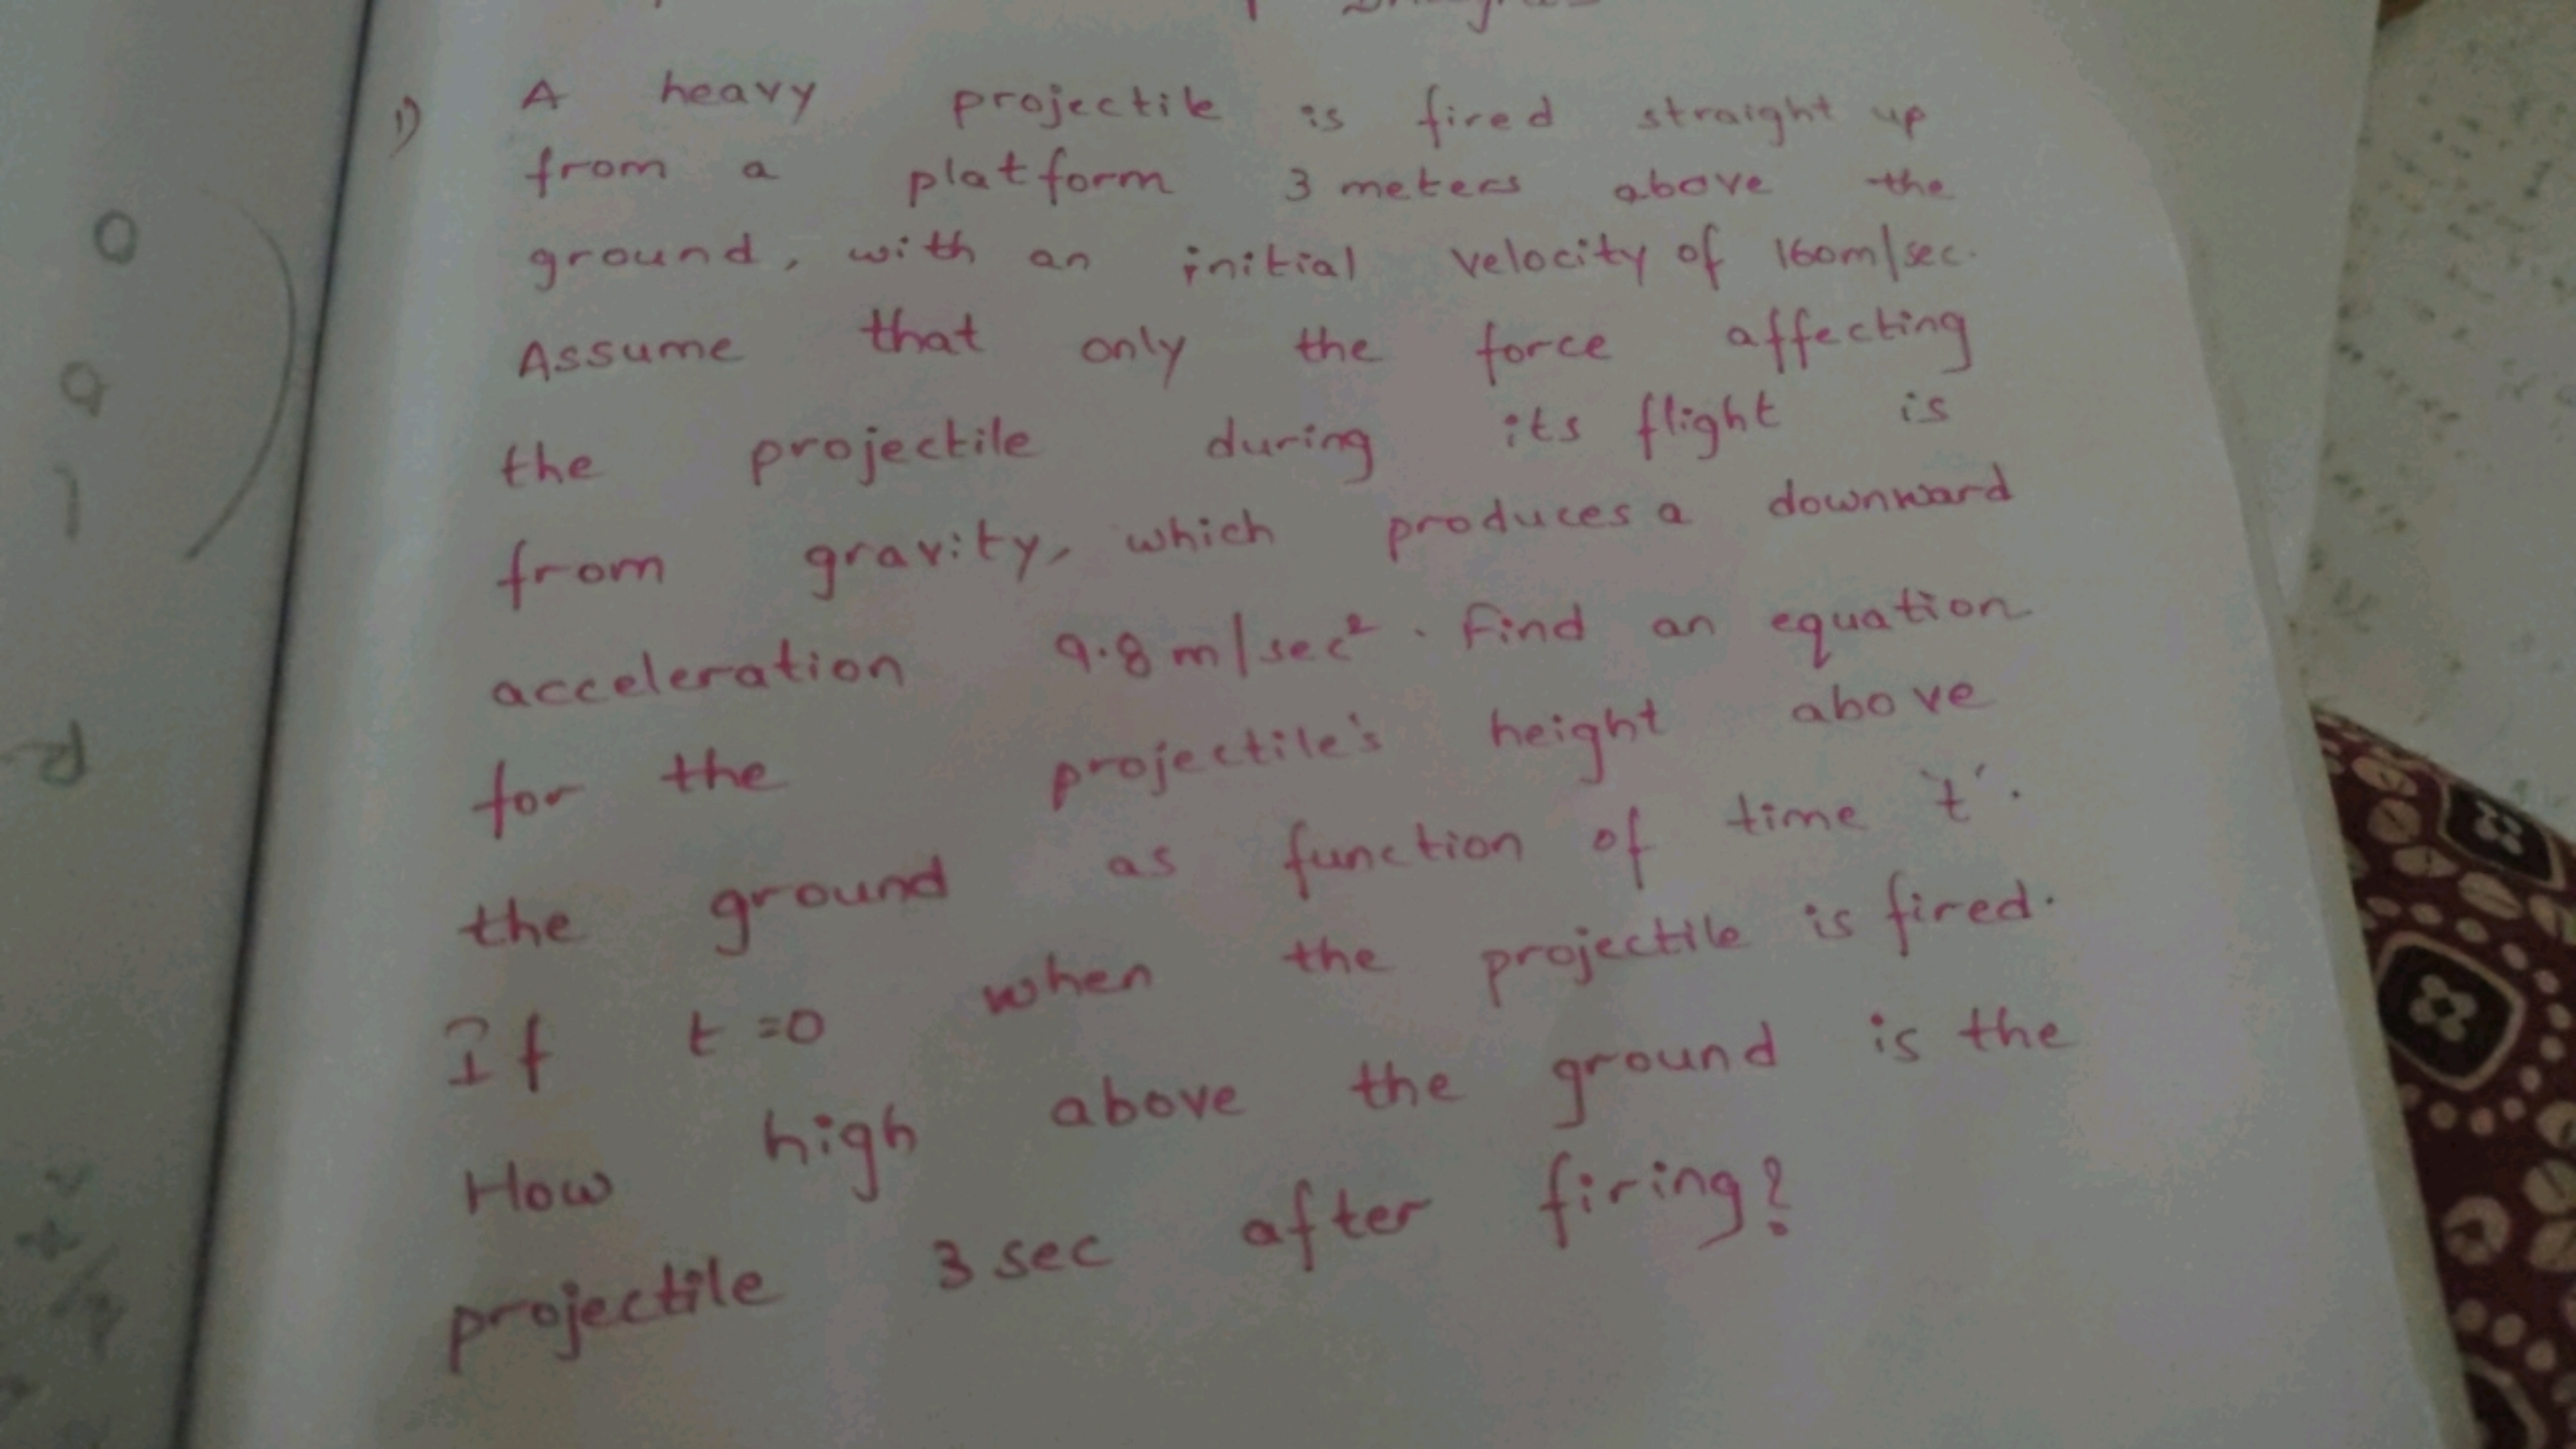 1) A heavy projectile is fired straight up
from a platform 3 meters above the
ground, with an initial velocity of 160m/sec.
Assume that only the force affecting
the projectile during its flight is
from gravity, which produces a downward
acceleration 9.8 m/sec². Find an equation
for the projectile's height above
the ground as function of time 't'.
If t=0 when the projectile is fired.
How high above the ground is the
projectile 3 sec after firing?